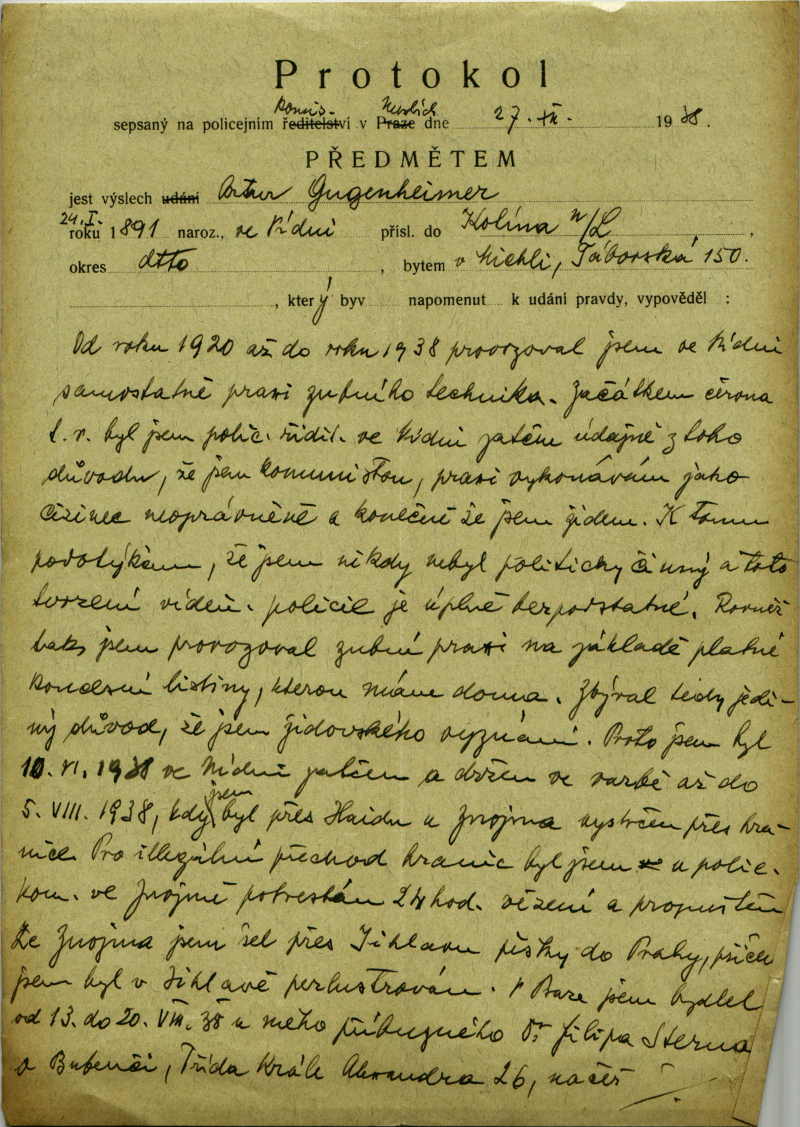 Protokol
komis- Nuslích
sepsaný na policejním ředitelství v Praze dne 27. XII. 1938.
PŘEDMĚTEM
jest výslech udání Artur Gugenheimer
24. I.
roku 1891 naroz., ve Vídni přísl. do Kolína n/L ,
okres dtto , bytem v Michli, Táborská 150.
, který byv napomenut k udání pravdy, vypověděl :
Od roku 1920 až do roku 1938 provozoval jsem ve Vídni
samostatně praxi zubního technika. Začátkem června
t. r. byl jsem polic. řédit. ve Vídni zatčen údajně z toho
důvodu, že jsem komunistou, praxi vykonávám jako
cizinec neoprávněně a konečně že jsem židem. K tomu
podotýkám, že jsem nikdy nebyl politicky činný a toto
tvrzení vídeň. policie je úplně bezpodstatné. Rovněž
tak jsem provozoval zubní praxi na základě platné
koncesní listiny, kterou mám doma. Zbýval tedy jedi-
ný důvod, že jsem židovského vyznání. Proto jsem byl
10. VI. 1938 ve Vídni zatčen a držen ve vazbě až do
jsem
5. VIII. 1938, kdy byl přes Haidu u Znojma vystrčen přes hra-
nice. Pro illegální přechod hranic byl jsem u polic.
kom. ve Znojmě potrestán 24 hod. vězení a propuštěn
Ze Znojma jsem šel přes Jihlavu pěšky do Prahy, přičem
jsem byl v Jihlavě perlustrován. V Praze jsem bydlel
od 13. do 20. VIII. 38 u mého příbuzného Dr Filipa Sterna
v Bubenči, Třída Krále Alexandra 26, načež